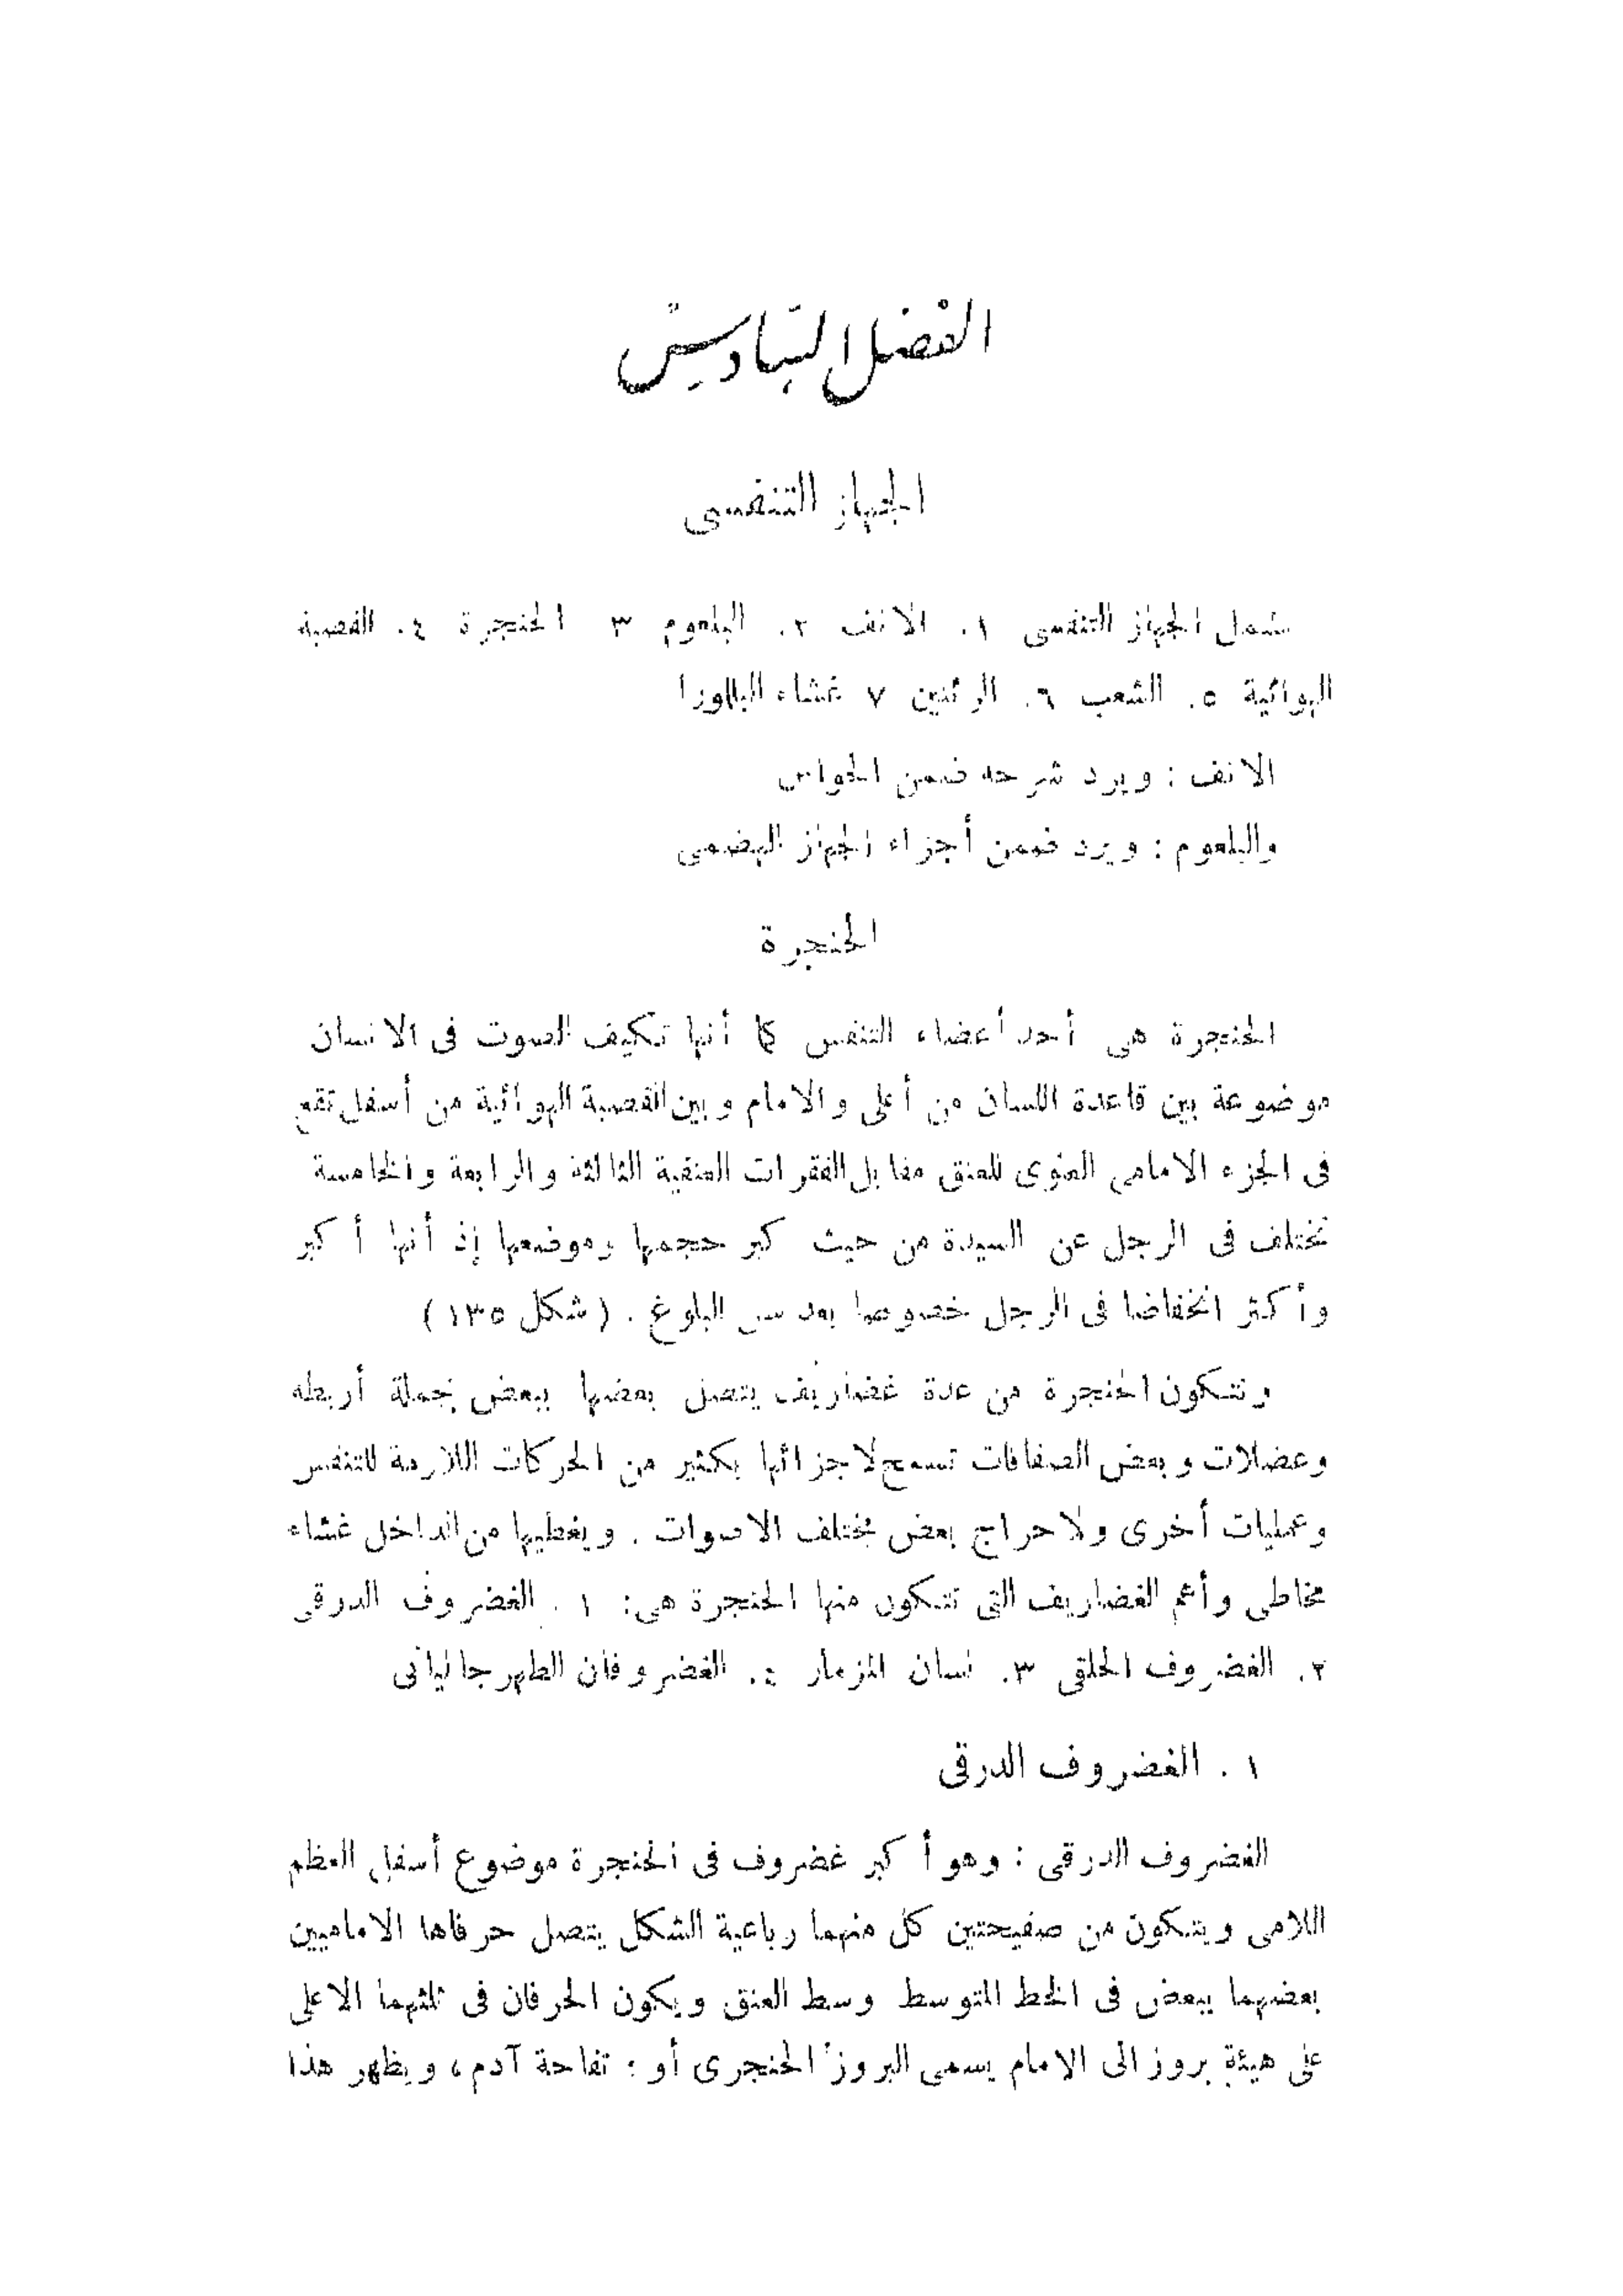 الفصل السادس
الجهاز التنفسى
يشمل الجهاز التنفسى ١. الانف ٢. البلعوم ٣ الحنجرة ٤. القصبة
الهوائية ٥. الشعب ٦. الرئتين ٧ غشاء البللورا
الانف : ويرد شرحه ضمن الحواس
والبلعوم : ويرد ضمن أجزاء الجهاز الهضمى
الحنجرة
الحنجرة هى أحد أعضاء التنفس كما أنها تكيف الصوت فى الانسان
موضوعة بين قاعدة اللسان من أعلى والامام وبين القصبة الهوائية من أسفل تقع
فى الجزء الامامى العلوى للعنق مقابل الفقرات العنقية الثالثة والرابعة والخامسة
تختلف فى الرجل عن السيدة من حيث كبر حجمها وموضعها إذ أنها أكبر
وأكثر انخفاضا فى الرجل خصوصا بعد سن البلوغ . ( شكل ١٣٥ )
وتتكون الحنجرة من عدة غضاريف يتصل بعضها ببعض بجملة أربطه
وعضلات وبعض الصفاقات تسمح لاجزائها بكثير من الحركات اللازمة للتنفس
وعمليات أخرى ولاحراج بعض مختلف الاصوات . ويغطيها من الداخل غشاء
مخاطى وأهم الغضاريف التى تتكون منها الحنجرة هى: ١ . الغضروف الدرقى
٢. الغضروف الحلقى ٣. لسان المزمار ٤. الغضروفان الطهرجاليانى
١ . الغضروف الدرقى
الغضروف الدرقى : وهو أكبر غضروف فى الحنجرة موضوع أسفل العظم
اللامى ويتكون من صفيحتين كل منهما رباعية الشكل يتصل حرفاها الاماميين
بعضهما ببعض فى الخط المتوسط وسط العنق ويكون الحرفان فى ثلثهما الاعلى
على هيئة بروز الى الامام يسمى البروز الحنجرى أو : تفاحة آدم ، ويظهر هذا